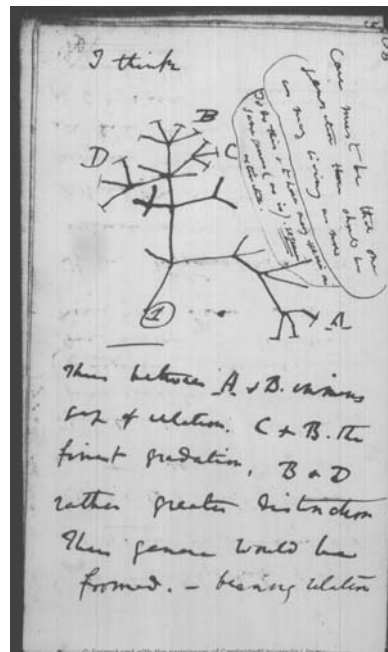 36
I think
Case must be that one
generation then should be
as many living as now
To do this & to have many species in
same genus (as is) requires
extinction.
B
D
C
1
A
Thus between A & B. immens
gap of relation. C & B. the
finest gradation, B & D
rather greater distinction
Thus genera would be
formed. — bearing relation